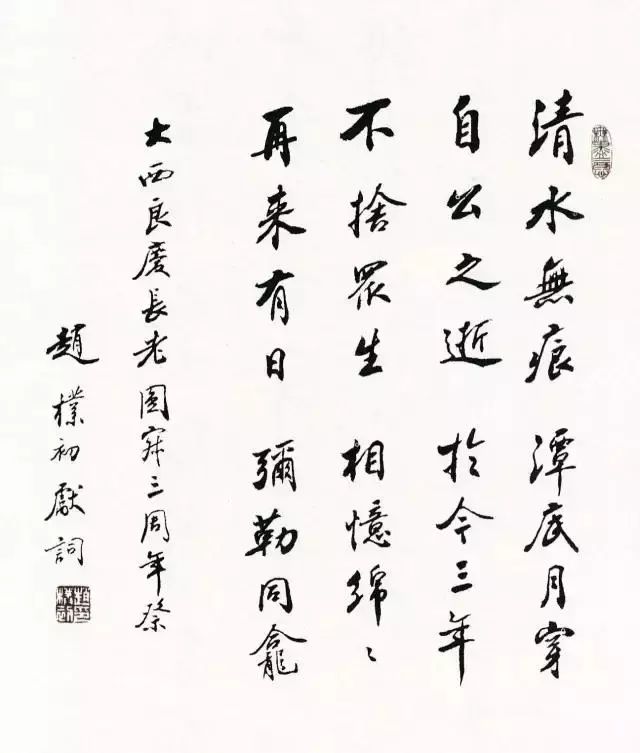 清水無痕 潭底月穿
自公之逝 於今三年
不捨眾生 相憶綿〻
再来有日 彌勒同龕
大西良慶長老圓寂三周年祭
趙樸初獻詞